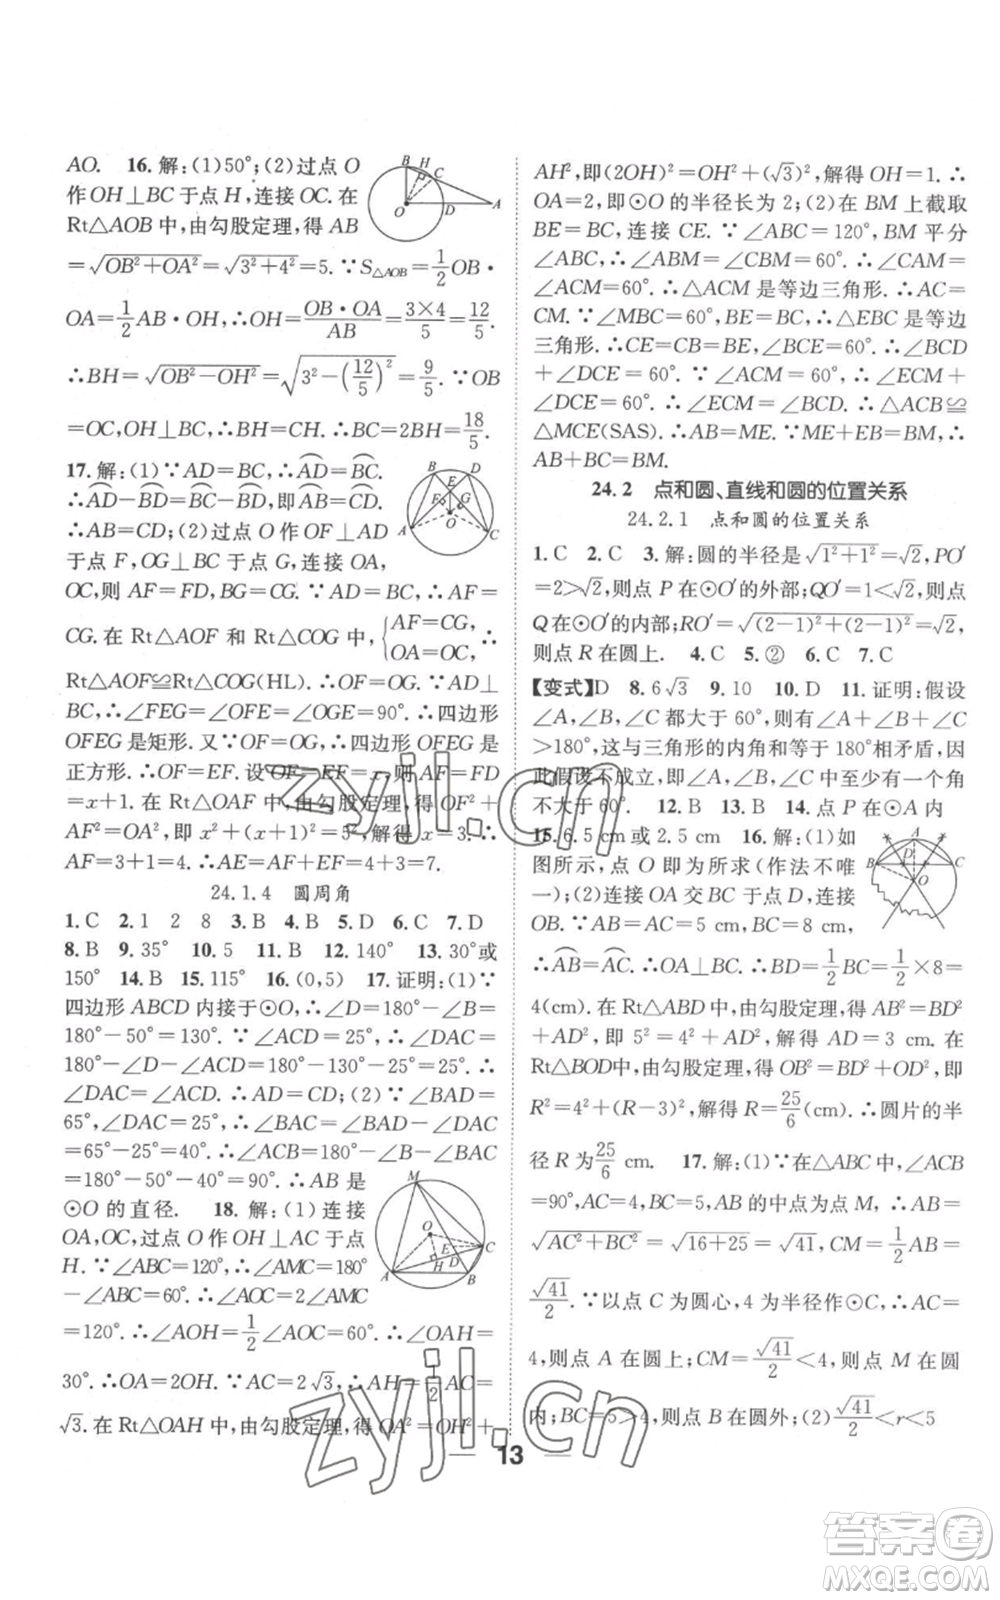 AO. 16. 解:(1)50°;(2)过点 O
作 OH⊥BC 于点 H,连接 OC. 在
Rt△AOB 中,由勾股定理,得 AB
=√(OB²+OA²)=√(3²+4²)=5. ∵S△AOB=1/2 OB·
OA=1/2 AB·OH,∴OH=(OB·OA)/AB=(3×4)/5=12/5.
∴BH=√(OB²-OH²)=√(3²-(12/5)²)=9/5. ∵OB
=OC,OH⊥BC,∴BH=CH. ∴BC=2BH=18/5.
17. 解:(1)∵AD=BC,∴⌒AD=⌒BC.
∴⌒AD-⌒BD=⌒BC-⌒BD,即⌒AB=⌒CD.
∴AB=CD;(2)过点 O 作 OF⊥AD
于点 F,OG⊥BC 于点 G,连接 OA,
OC,则 AF=FD,BG=CG. ∵AD=BC,∴AF=
CG. 在 Rt△AOF 和 Rt△COG 中,{AF=CG, OA=OC, ∴
Rt△AOF≌Rt△COG(HL). ∴OF=OG. ∵AD⊥
BC,∴∠FEG=∠OFE=∠OGE=90°. ∴四边形
OFEG 是矩形. 又∵OF=OG,∴四边形 OFEG 是
正方形. ∴OF=EF. 设 OF=EF=x,则 AF=FD
=x+1. 在 Rt△OAF 中,由勾股定理,得 OF²+
AF²=OA²,即 x²+(x+1)²=5²,解得 x=3. ∴
AF=3+1=4. ∴AE=AF+EF=4+3=7.
24.1.4 圆周角
1. C 2. 1 2 8 3. B 4. B 5. D 6. C 7. D
8. B 9. 35° 10. 5 11. B 12. 140° 13. 30°或
150° 14. B 15. 115° 16. (0,5) 17. 证明:(1)∵
四边形 ABCD 内接于⊙O,∴∠D=180°-∠B=
180°-50°=130°. ∵∠ACD=25°,∴∠DAC=
180°-∠D-∠ACD=180°-130°-25°=25°.
∴∠DAC=∠ACD. ∴AD=CD;(2)∵∠BAD=
65°,∠DAC=25°,∴∠BAC=∠BAD-∠DAC=
65°-25°=40°. ∴∠ACB=180°-∠B-∠BAC=
180°-50°-40°=90°. ∴AB 是
⊙O 的直径. 18. 解:(1)连接
OA,OC,过点 O 作 OH⊥AC 于点
H. ∵∠ABC=120°,∴∠AMC=180°
-∠ABC=60°. ∴∠AOC=2∠AMC
=120°. ∴∠AOH=1/2∠AOC=60°. ∴∠OAH=
30°. ∴OA=2OH. ∵AC=2√3,∴AH=1/2AC=
√3. 在 Rt△OAH 中,由勾股定理,得 OA²=OH²+
AH²,即(2OH)²=OH²+(√3)²,解得 OH=1. ∴
OA=2,即⊙O 的半径长为 2;(2)在 BM 上截取
BE=BC,连接 CE. ∵∠ABC=120°,BM 平分
∠ABC,∴∠ABM=∠CBM=60°. ∴∠CAM=
∠CBM=60°. ∴△ACM 是等边三角形. ∴AC=
CM. ∵∠MBC=60°,BE=BC,∴△EBC 是等边
三角形. ∴CE=CB=BE,∠BCE=60°. ∴∠BCD
+∠DCE=60°. ∵∠ACM=60°,∴∠ECM+
∠DCE=60°. ∴∠ECM=∠BCD. ∴△ACB≌
△MCE(SAS). ∴AB=ME. ∵ME+EB=BM,∴
AB+BC=BM.
24.2 点和圆、直线和圆的位置关系
24.2.1 点和圆的位置关系
1. C 2. C 3. 解:圆的半径是√(1²+1²)=√2,PO′
=2>√2,则点 P 在⊙O′的外部;QO′=1<√2,则点
Q 在⊙O′的内部;RO′=√((2-1)²+(2-1)²)=√2,
则点 R 在圆上. 4. C 5. ② 6. C 7. C
【变式】D 8. 6√3 9. 10 10. D 11. 证明:假设
∠A,∠B,∠C 都大于 60°,则有∠A+∠B+∠C
>180°,这与三角形的内角和等于 180°相矛盾,因
此假设不成立,即∠A,∠B,∠C 中至少有一个角
不大于 60°. 12. B 13. B 14. 点 P 在⊙A 内
15. 6.5 cm 或 2.5 cm 16. 解:(1)如
图所示,点 O 即为所求(作法不唯
一);(2)连接 OA 交 BC 于点 D,连接
OB. ∵AB=AC=5 cm,BC=8 cm,
∴⌒AB=⌒AC. ∴OA⊥BC. ∴BD=1/2BC=1/2×8=
4(cm). 在 Rt△ABD 中,由勾股定理,得 AB²=BD²
+AD²,即 5²=4²+AD²,解得 AD=3 cm. 在
Rt△BOD中,由勾股定理,得 OB²=BD²+OD²,即
R²=4²+(R-3)²,解得 R=25/6(cm). ∴圆片的半
径 R 为25/6 cm. 17. 解:(1)∵在△ABC 中,∠ACB
=90°,AC=4,BC=5,AB 的中点为点 M,∴AB=
√(AC²+BC²)=√(16+25)=√41,CM=1/2AB=
√41/2. ∵以点 C 为圆心,4 为半径作⊙C,∴AC=
4,则点 A 在圆上;CM=√41/2<4,则点 M 在圆
内;BC=5>4,则点 B 在圆外;(2)√41/2<r<5
13
zyjl.cn
zyjl.cn
答案卷
MXQE.COM